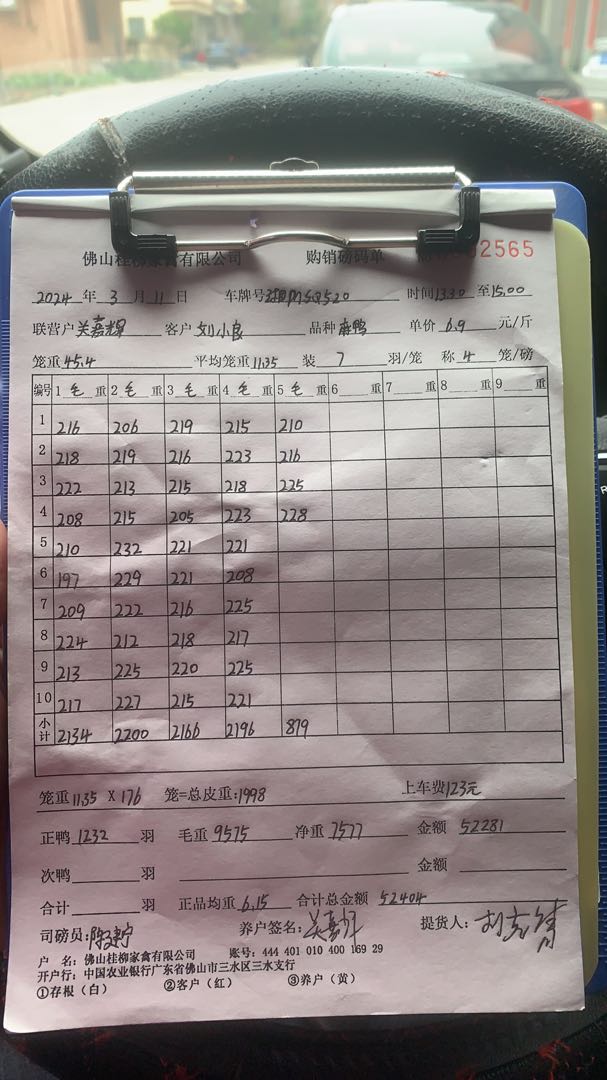 佛山桂柳家禽有限公司 购销磅码单 2565
2024 年 3 月 11 日 车牌号 时间 1330 至 15.00
联营户 关嘉辉 客户 刘小良 品种 麻鸭 单价 6.9 元/斤
笼重 45.4 平均笼重 11.35 装 7 羽/笼 称 4 笼/磅
编号 1 毛 重 2 毛 重 3 毛 重 4 毛 重 5 毛 重 6 重 7 重 8 重 9 重
1 216 206 219 215 210
2 218 219 216 223 216
3 222 213 215 218 225
4 208 215 205 223 228
5 210 232 221 221
6 197 229 221 208
7 209 222 216 225
8 224 212 218 217
9 213 225 220 225
10 217 227 215 221
小计 2134 2200 2166 2196 879
笼重 11.35 X 176 笼=总皮重:1998 上车费 123元
正鸭 1232 羽 毛重 9575 净重 7577 金额 52281
次鸭 羽 金额
合计 羽 正品均重 6.15 合计总金额 52404
司磅员: 养户签名: 关嘉辉 提货人:
户 名: 佛山桂柳家禽有限公司 账号: 444 401 010 400 169 29
开户行: 中国农业银行广东省佛山市三水区三水支行
①存根(白) ②客户(红) ③养户(黄)